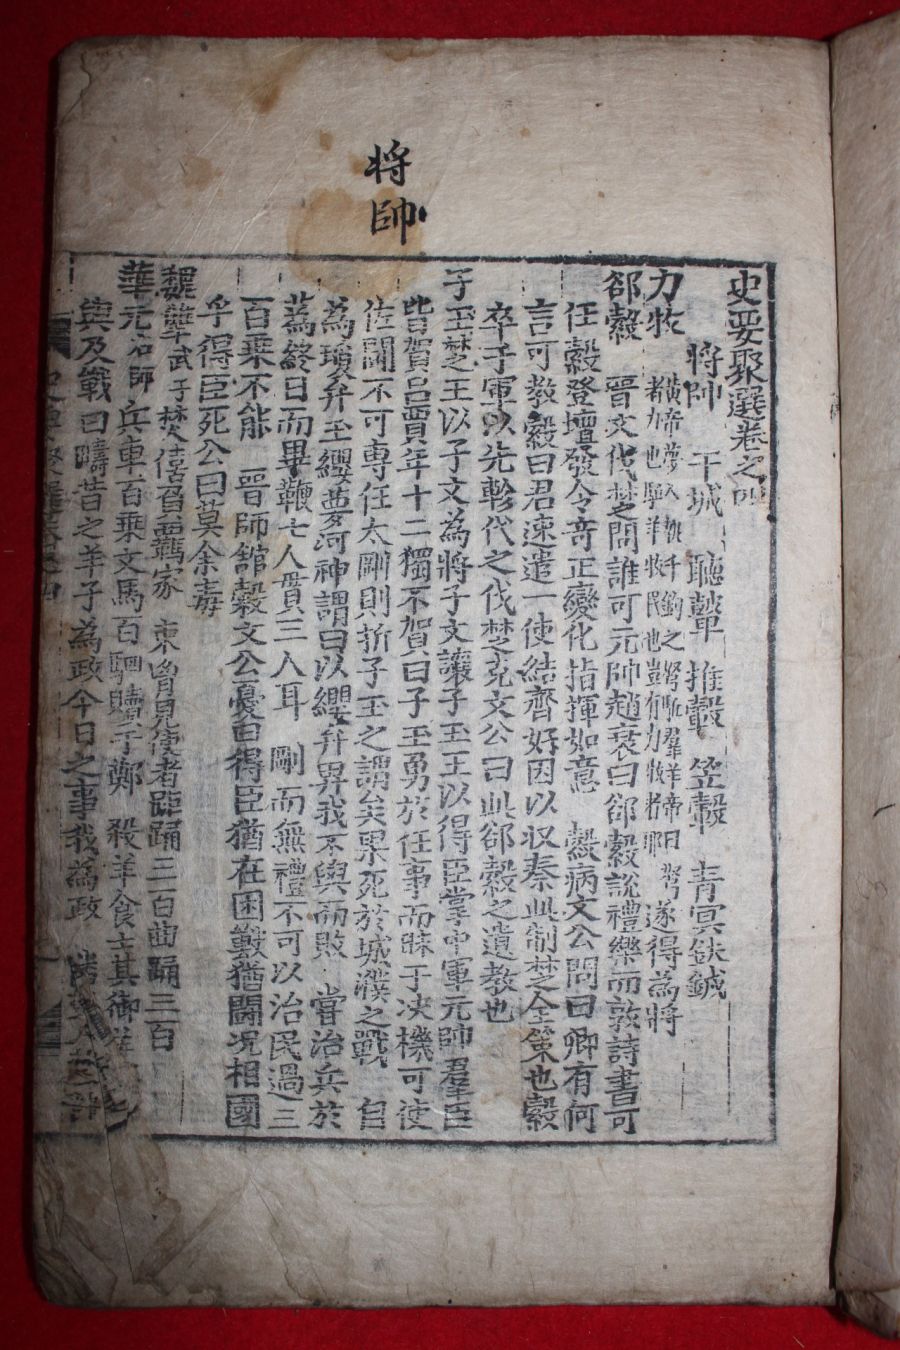 将帥
史要聚選卷之四
將帥 干城 聽鼙 推轂 笠轂 青冥鈇鉞
力牧 黃帝夢人執千鈞之弩駈羣羊帝曰弩
者力也駈羊牧民也豈有力牧者耶 遂得為將
郤縠 晉文伐楚問誰可元帥趙衰曰郤縠說禮樂而敦詩書可
任縠登壇發令奇正變化指揮如意 縠病文公問曰卿有何
言可教縠曰君速遣一使結齊好因以収秦此制楚全策也縠
卒子軍以先軫代之伐楚克文公曰此郤縠之遺教也
子玉楚王以子文為將子文讓子玉王以得臣掌中軍元帥羣臣
皆賀呂賈年十二獨不賀曰子玉勇於任事而昧于决機可使
佐閗不可專任太剛則折子玉之謂矣果死於城濮之戰 自
為瓊弁玉纓夢河神謂曰以纓弁畀我不與而敗 嘗治兵於
蔿終日而畢鞭七人貫三人耳 剛而無禮不可以治民過三
百乘不能 晉師舘穀文公憂曰得臣猶在困獸猶鬪况相國
乎得臣死公曰莫余毒
魏犨武子焚僖負覊家 束胷見使者距踊三百曲踊三百
華元右師兵車百乘文馬百駟贖于鄭 殺羊食士其御羊
與及戰曰疇昔之羊子為政今日之事我為政